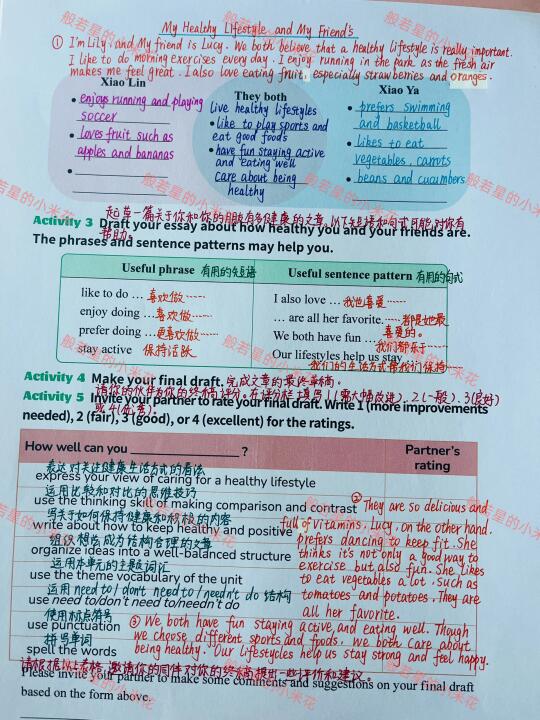 My Healthy Lifestyle and My Friend's
① I'm Lily, and My friend is Lucy. We both believe that a healthy lifestyle is really important.
I like to do morning exercises every day. I enjoy running in the park as the fresh air
makes me feel great. I also love eating fruit, especially strawberries and oranges.
Xiao Lin
• enjoys running and playing
soccer
• loves fruit such as
apples and bananas
•
They both
live healthy lifestyles
• like to play sports and
eat good foods
• have fun staying active
and eating well
care about being
healthy
Xiao Ya
• prefers swimming
and basketball
• likes to eat
vegetables, carrots
• beans and cucumbers
起草一篇关于你和你的朋友有多健康的文章,以下短语和句式可能对你有
帮助。
Activity 3 Draft your essay about how healthy you and your friends are.
The phrases and sentence patterns may help you.
Useful phrase 有用的短语
like to do … 喜欢做……
enjoy doing … 喜欢做……
prefer doing … 更喜欢做……
stay active 保持活跃
Useful sentence pattern 有用的句式
I also love … 我也喜爱……
… are all her favorite. ……都是她最
喜爱的。
We both have fun … 我们都乐于……
Our lifestyles help us stay …
我们的生活方式帮我们保持……
Activity 4 Make your final draft. 完成文章的最终草稿。
请你的伙伴为你的终稿评分。在评分栏上填写1(需大幅改进)、2(一般)、3(良好)
或4(优秀)。
Activity 5 Invite your partner to rate your final draft. Write 1 (more improvements
needed), 2 (fair), 3 (good), or 4 (excellent) for the ratings.
How well can you ____________ ?
Partner's
rating
表达对关注健康生活方式的看法
express your view of caring for a healthy lifestyle
运用比较和对比的思维技巧
use the thinking skill of making comparison and contrast
写关于如何保持健康和积极的内容
write about how to keep healthy and positive
组织想法成为结构合理的文章
organize ideas into a well-balanced structure
运用本单元的主题词汇
use the theme vocabulary of the unit
运用 need to / don't need to / needn't do 结构
use need to/don't need to/needn't do
使用标点符号
use punctuation
拼写单词
spell the words
② They are so delicious and
full of vitamins. Lucy, on the other hand,
prefers dancing to keep fit. She
thinks it's not only a good way to
exercise but also fun. She likes
to eat vegetables a lot, such as
tomatoes and potatoes. They are
all her favorite.
③ We both have fun staying active and eating well. Though
we choose different sports and foods, we both care about
being healthy. Our lifestyles help us stay strong and feel happy.
请根据以上表格,邀请你的同伴对你的终稿提出一些评价和建议。
Please invite your partner to make some comments and suggestions on your final draft
based on the form above.
般若星的小米花